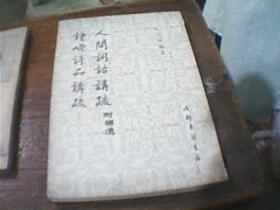 人間詞話講疏
附補遺
鍾嶸詩品講疏
成都古籍書店